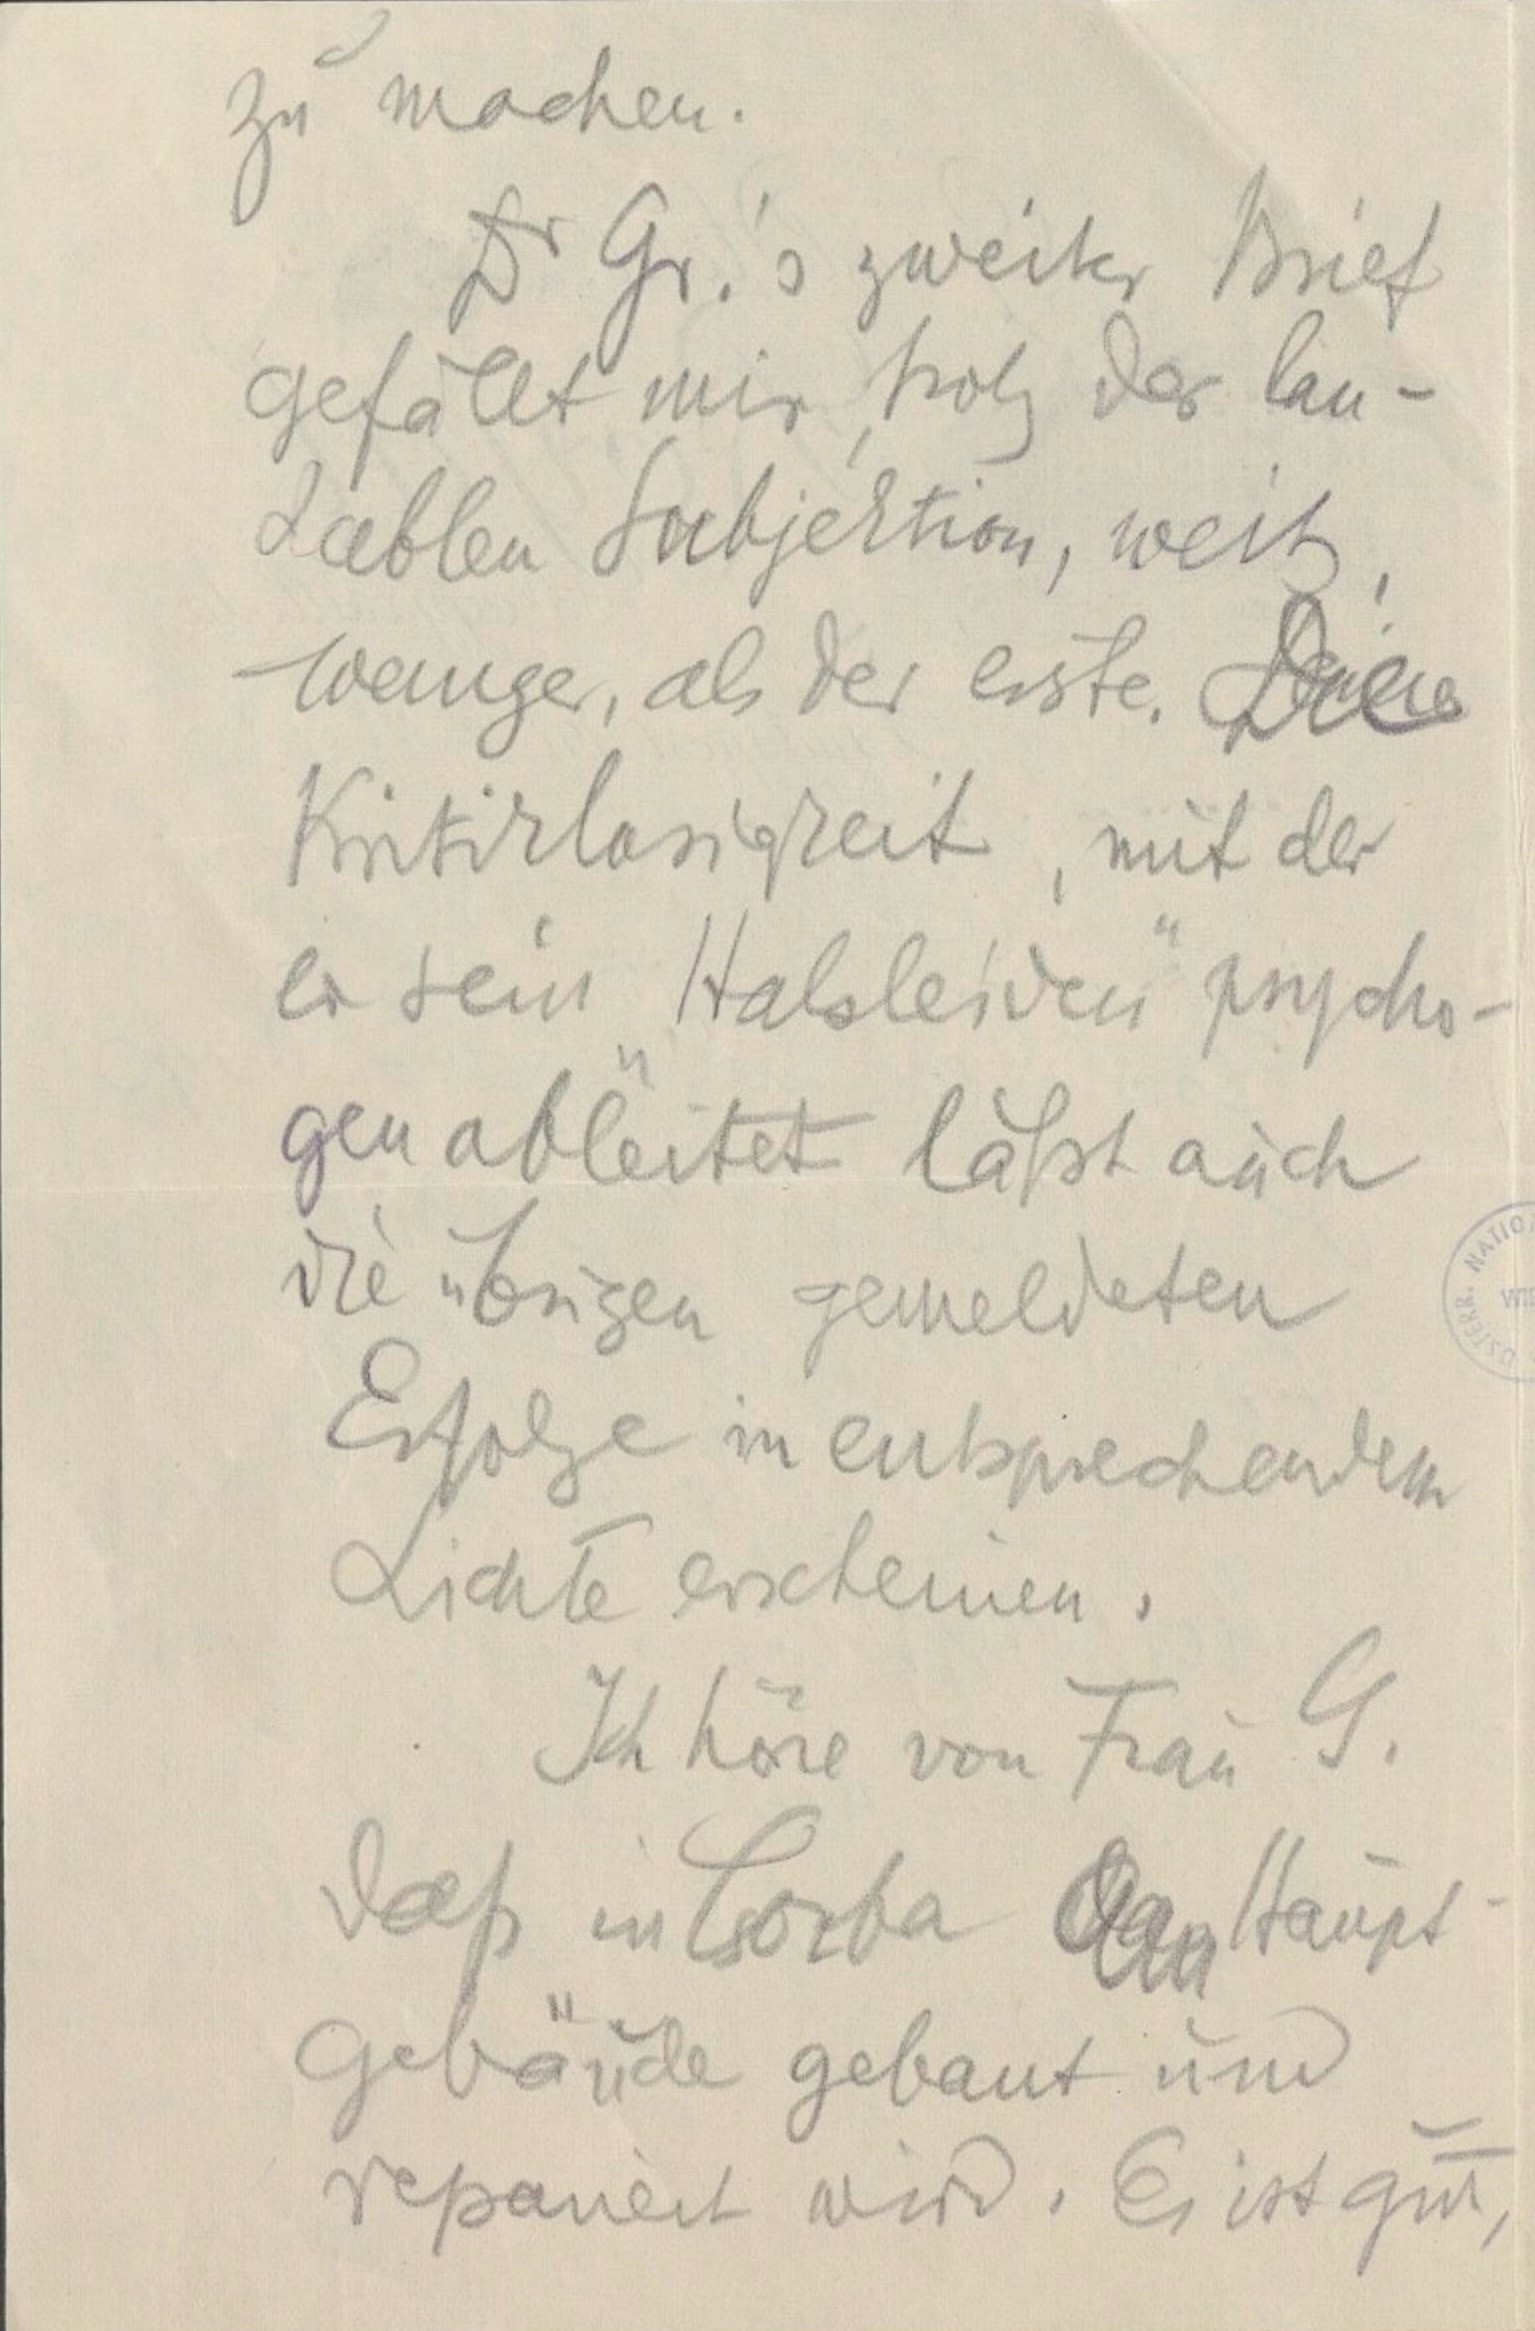 zu machen.
Dr Gr.'s zweiter Brief
gefällt mir, trotz der lau-
dablen Subjektion, weit
weniger, als der erste. Die
Kritiklosigkeit, mit der
er sein „Halsleiden“ psycho-
gen ableitet läßt auch
die übrigen gemeldeten
Erfolge in entsprechendem
Lichte erscheinen.
Ich höre von Frau G.
daß in Csorba am Haupt-
gebäude gebaut und
repariert wird. Es ist gut,
ÖSTERR. NATIO